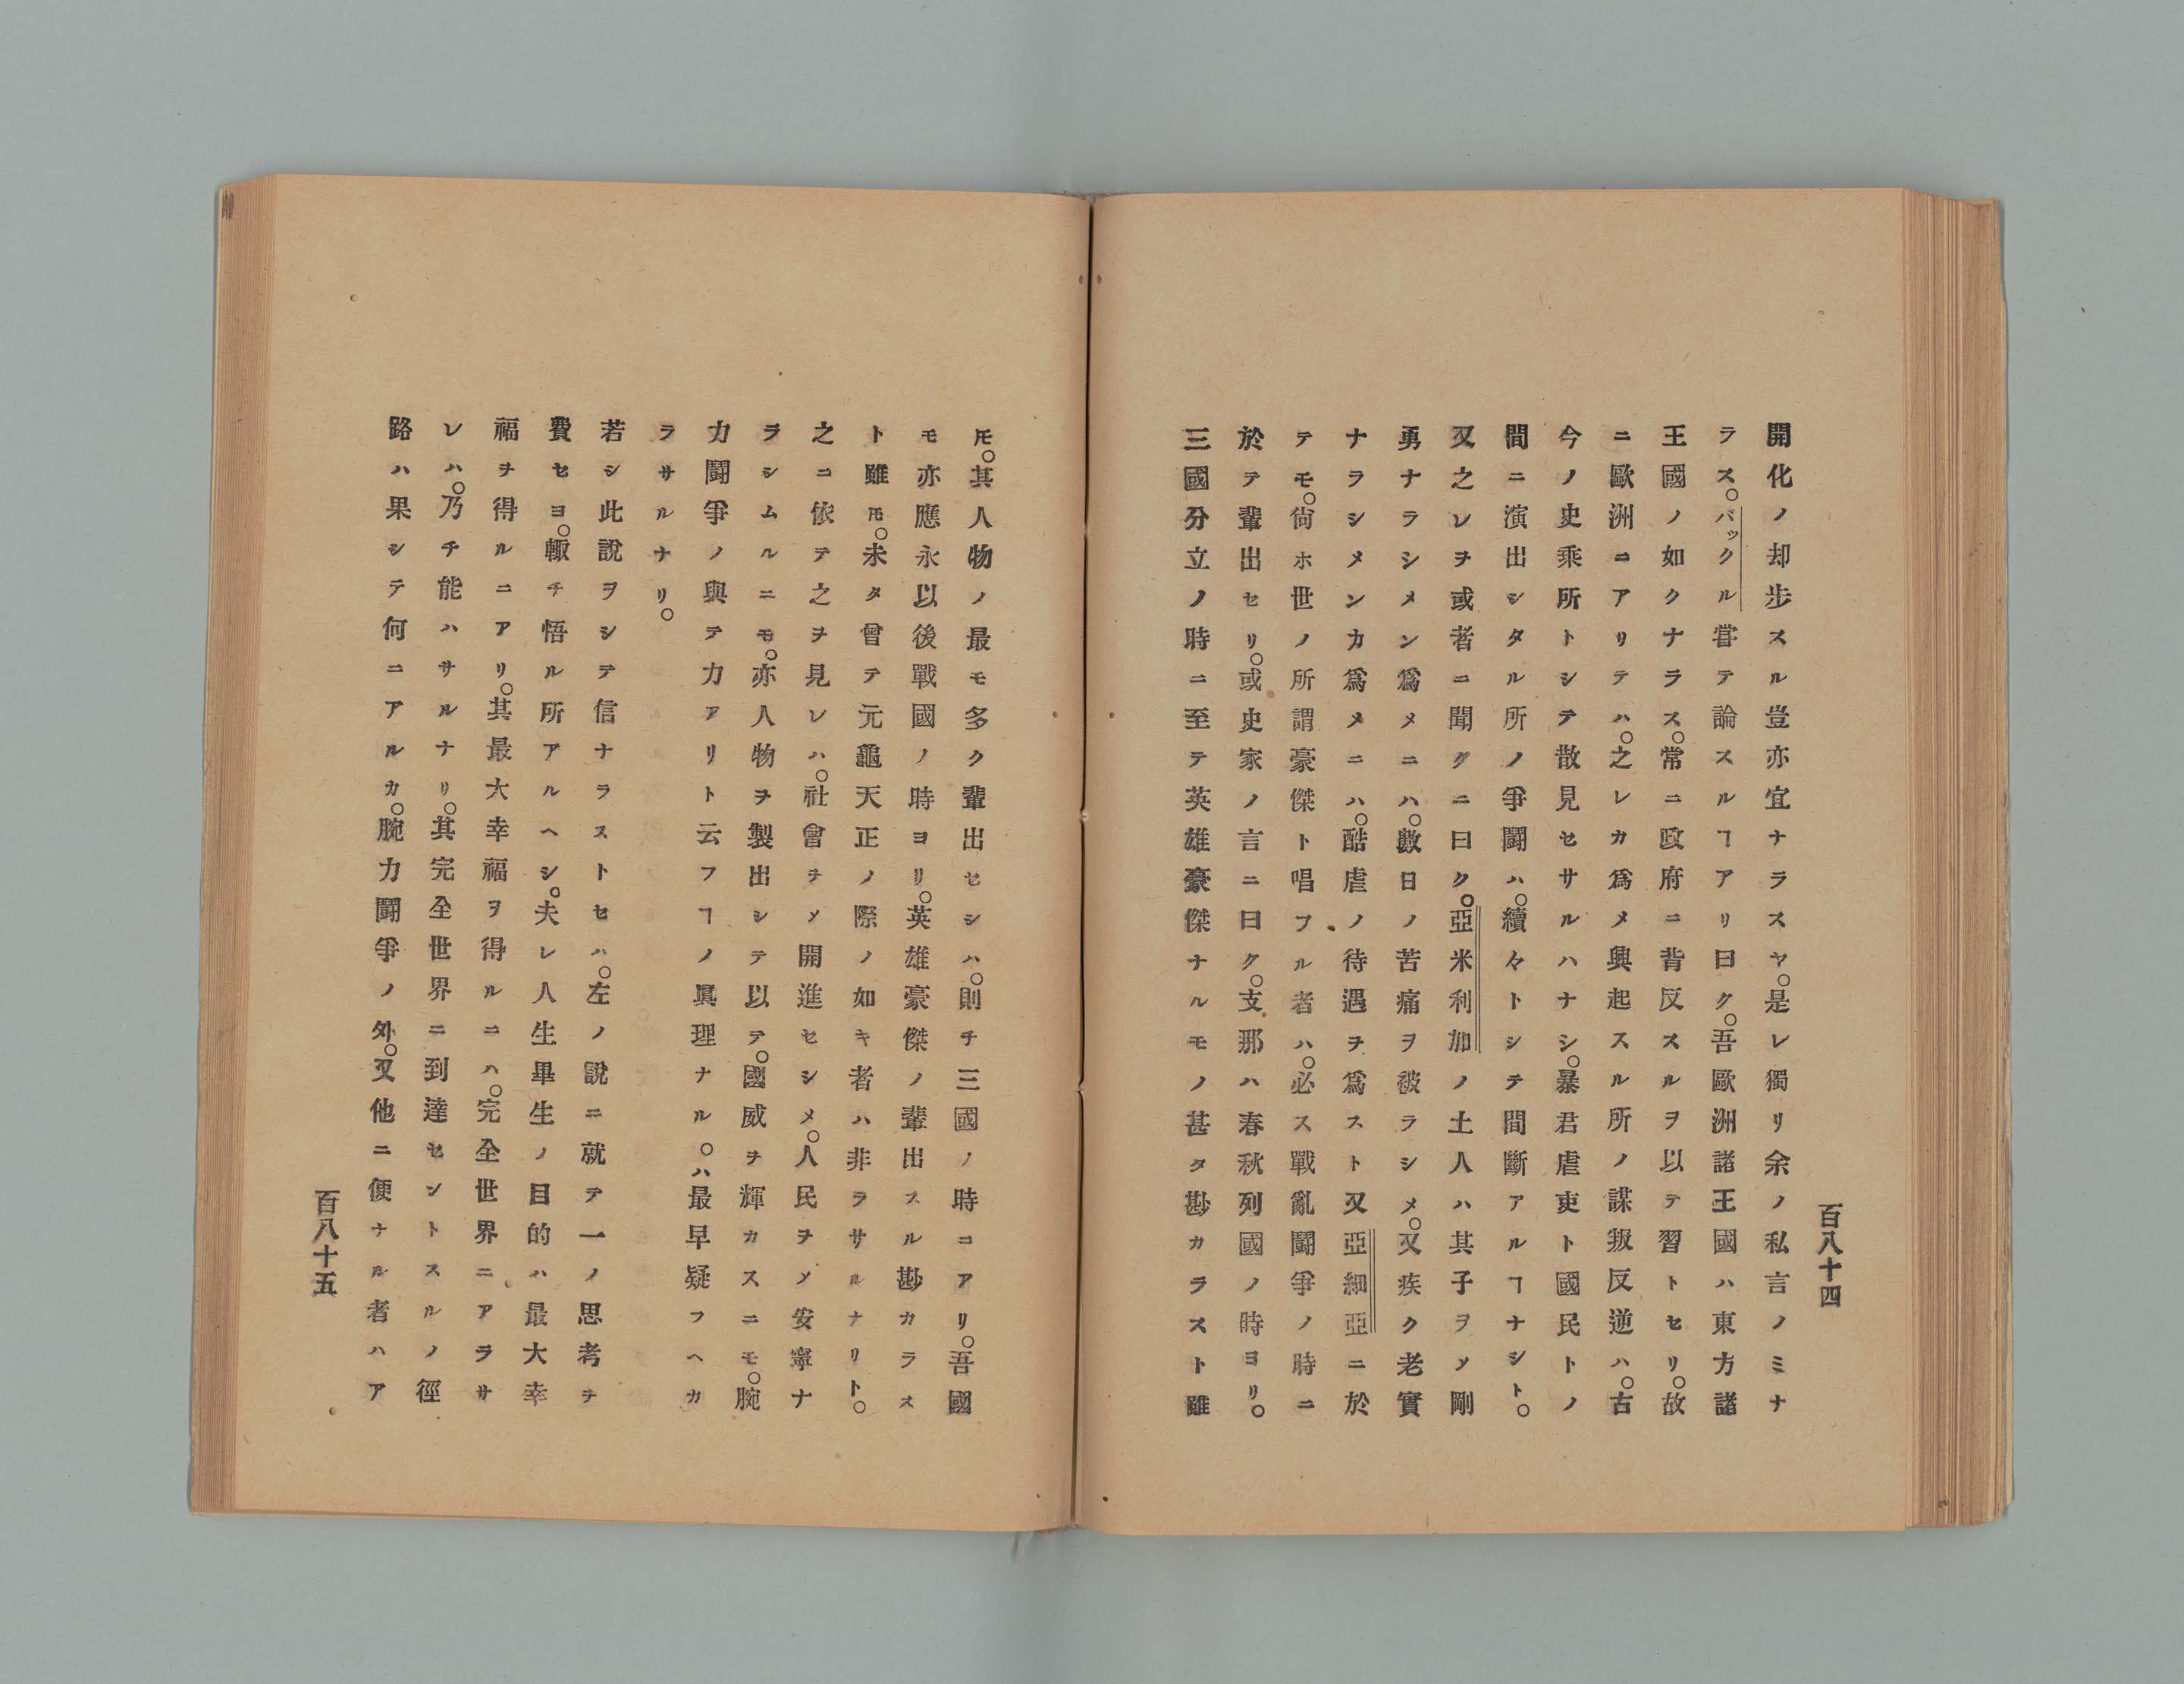 百八十四
開化ノ却步スル豈亦宜ナラスヤ。是レ獨リ余ノ私言ノミナ
ラス。バックル嘗テ論スルヿアリ曰ク。吾歐洲諸王國ハ東方諸
王國ノ如クナラス。常ニ政府ニ背反スルヲ以テ習トセリ。故
ニ歐洲ニアリテハ。之レカ爲メ興起スル所ノ謀叛反逆ハ。古
今ノ史乘所トシテ散見セサルハナシ。暴君虐吏ト國民トノ
間ニ演出シタル所ノ爭鬪ハ。續々トシテ間斷アルヿナシト。
又之レヲ或者ニ聞グニ曰ク。亞米利加ノ土人ハ其子ヲメ剛
勇ナラシメン爲メニハ。數日ノ苦痛ヲ被ラシメ。又疾ク老實
ナラシメンカ爲メニハ。酷虐ノ待遇ヲ爲スト又亞細亞ニ於
テモ。尙ホ世ノ所謂豪傑ト唱フル者ハ。必ス戰亂鬪爭ノ時ニ
於テ輩出セリ。或史家ノ言ニ曰ク。支那ハ春秋列國ノ時ヨリ。
三國分立ノ時ニ至テ英雄豪傑ナルモノ甚タ尠カラスト雖
𪜈。其人物ノ最モ多ク輩出セシハ。則チ三國ノ時コアリ。吾國
モ亦應永以後戰國ノ時ヨリ。英雄豪傑ノ輩出スル尠カラス
ト雖𪜈。未タ曾テ元龜天正ノ際ノ如キ者ハ非ラサルナリト。
之コ依テ之ヲ見レハ。社會ヲメ開進セシメ。人民ヲメ安寧ナ
ラシムルニモ。亦人物ヲ製出シテ以テ。國威ヲ輝カスニモ。腕
力鬪爭ノ與テ力アリト云フヿノ眞理ナル。ハ最早疑フヘカ
ラサルナリ。
若シ此說ヲシテ信ナラストセハ。左ノ說ニ就テ一ノ思考ヲ
費セヨ。輙チ悟ル所アルヘシ。夫レ人生畢生ノ目的ハ最大幸
福ヲ得ルニアリ。其最大幸福ヲ得ルニハ。完全世界ニアラサ
レハ。乃チ能ハサルナリ。其完全世界ニ到達セントスルノ徑
路ハ果シテ何ニアルカ。腕力鬪爭ノ外。又他ニ便ナル者ハア
百八十五